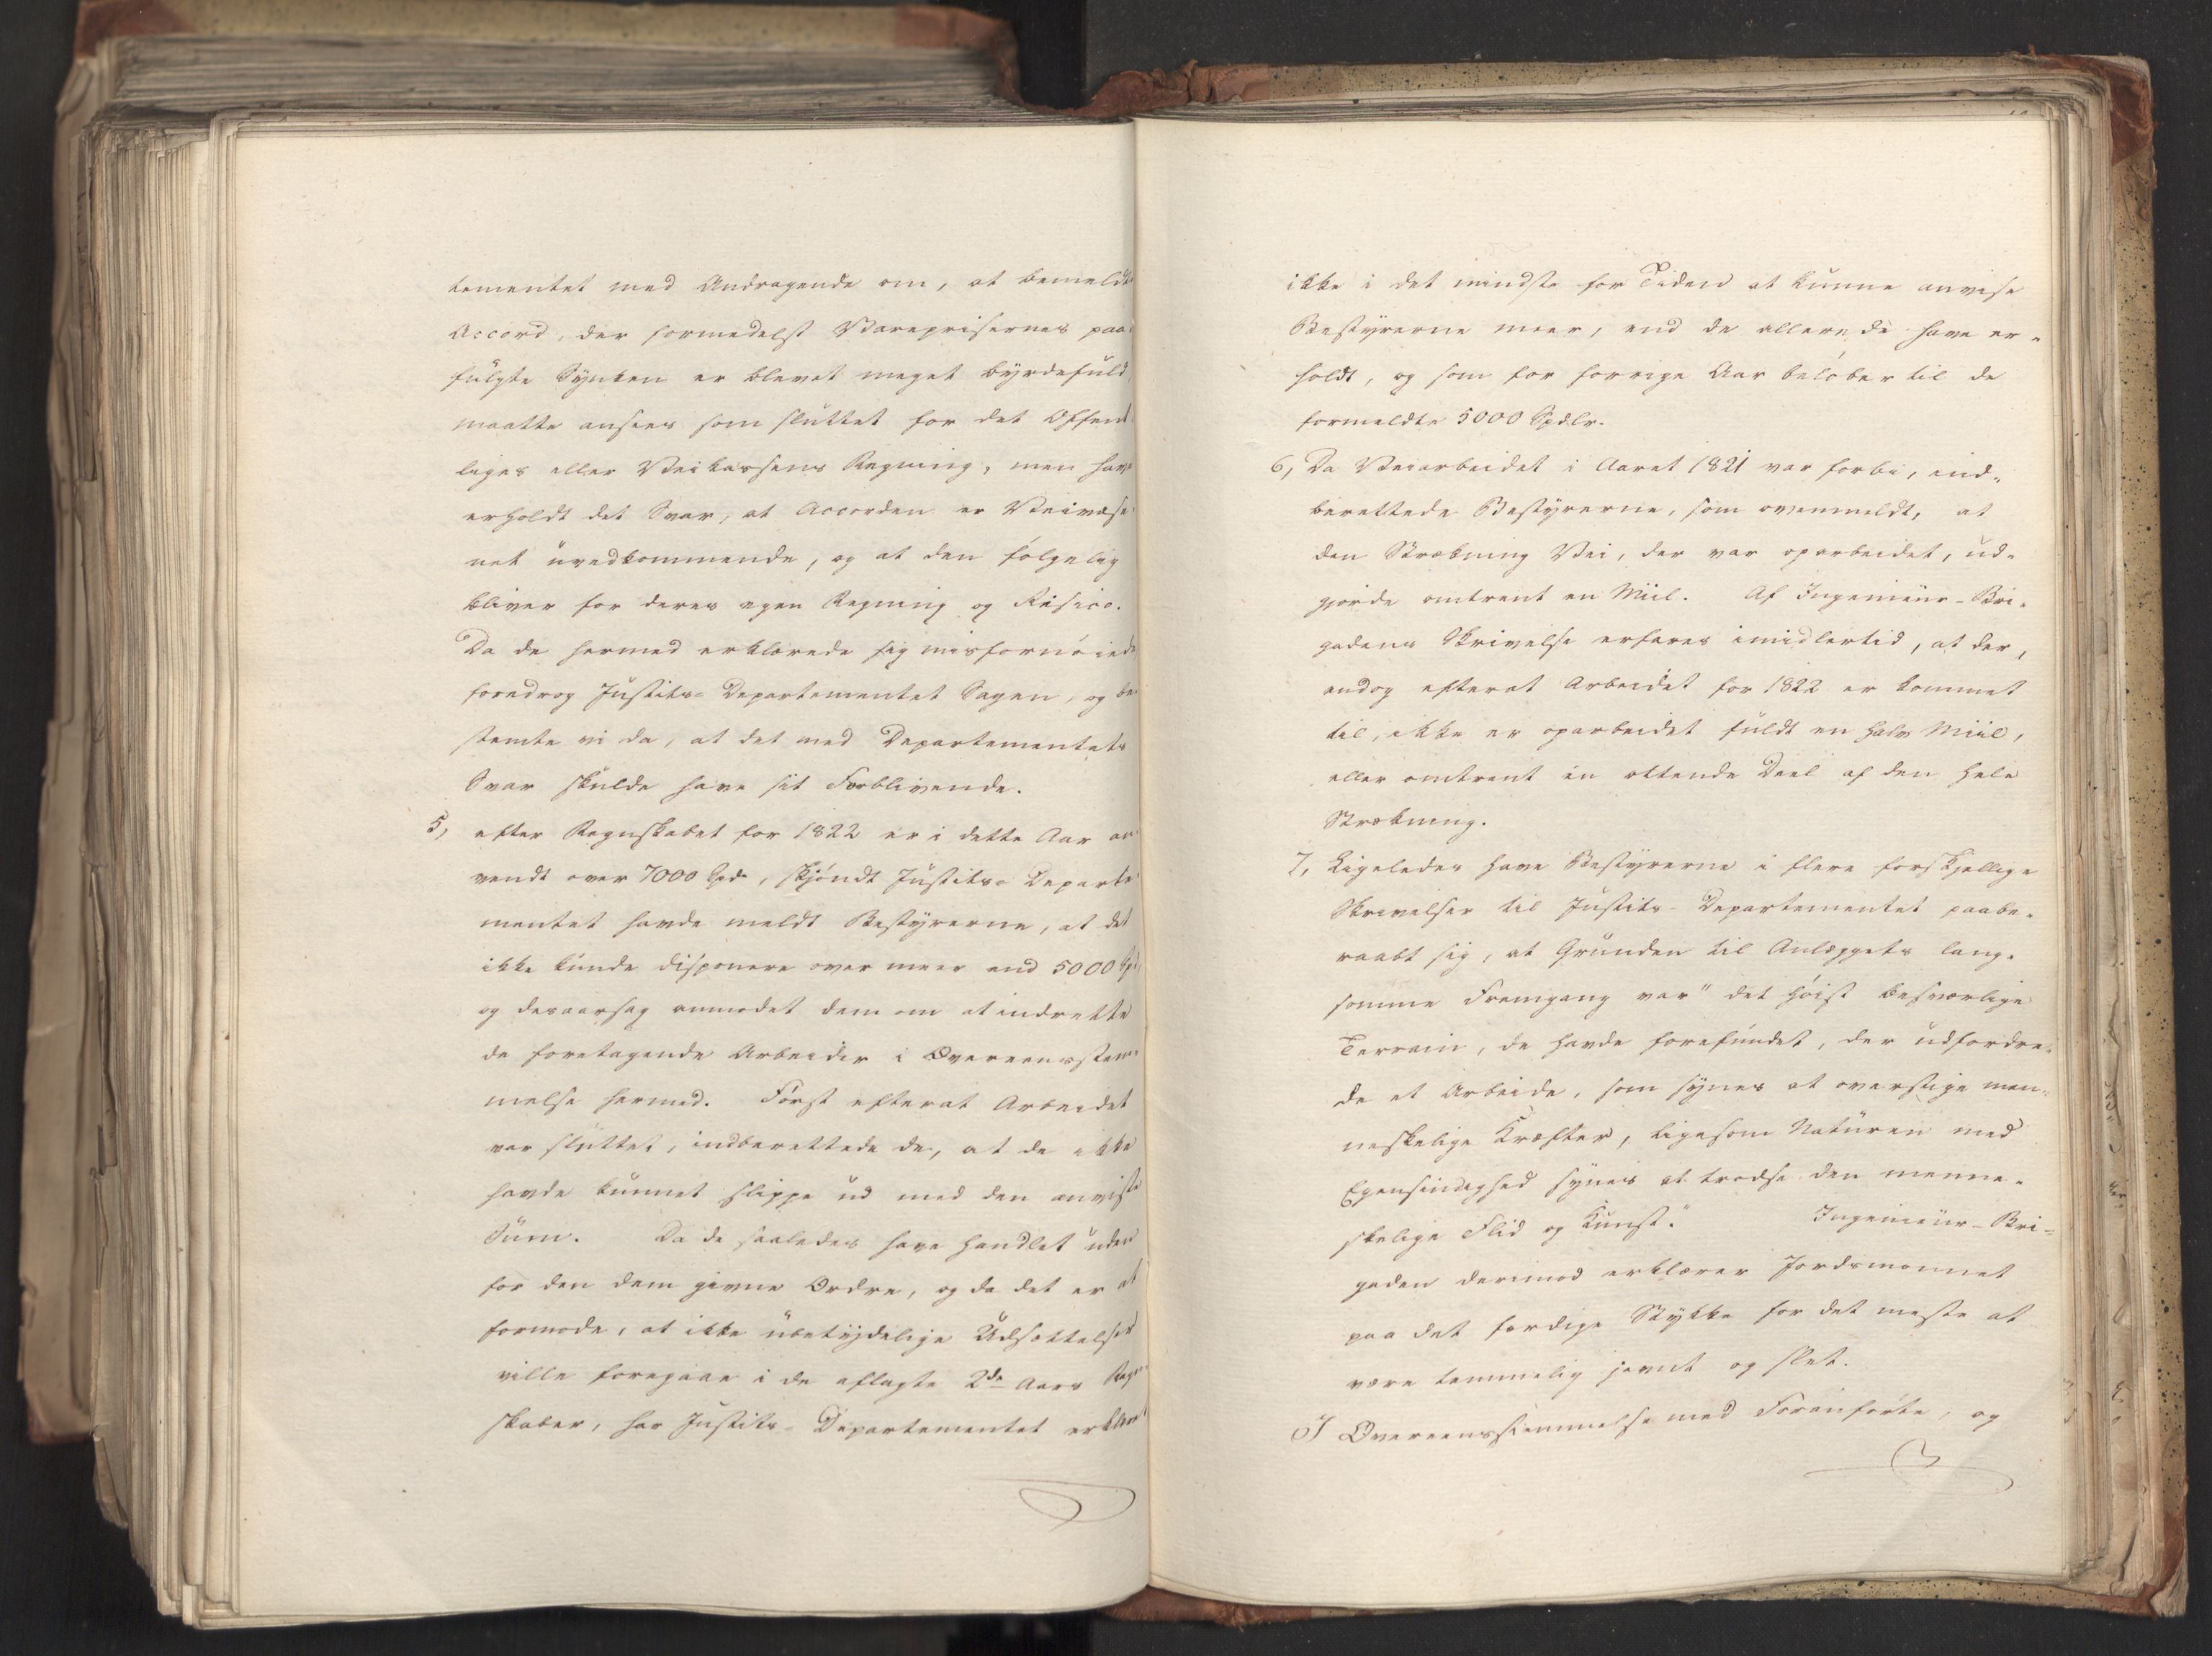 tementet med Andragende om, at bemeldte
Accord, der formedelst Varepriserne paa-
fulgte Synken er blevet meget byrdefuld,
maatte ansees som sluttet for det Offent
liges eller Veikassens Regning, men have
erholdt det Svar, at Accorden er Veivæse-
net uvedkommende, og at den følgelig
bliver for deres egen Regning og Risico.
Da de hermed erklærede sig misfornøiede,
foredrog Justits-Departementet Sagen, og be-
stemte vi da, at det med Departementets
Svar skulde have sit Forblivende.
5, efter Regnskabet for 1822 er i dette Aar an-
vendt over 7000 Spd, skjøndt Justits-Departe-
mentet havde meldt Bestyrerne, at det
ikke kunde disponere over meer end 5000 Spd,
og desaarsag anmodet dem om at indrette
de foretagende Arbeider i Overeensstem-
melse hermed. Først efterat Arbeidet
var sluttet, indberettede de, at de ikke
havde kunnet slippe ud med den anviste
Sum. Da de saaledes have handlet uden
for den dem givne Ordre, og da det er at
formode, at ikke ubetydelige Udsættelser
ville foregaae i de aflagte 2de Aars Regn-
skaber, har Justits-Departementet erklæret
ikke i det mindste for Tiden at kunne anvise
Bestyrerne meer, end de allerede have er-
holdt, og som for forrige Aar beløber til de
formeldte 5000 Spdlr.
6, Da Veiarbeidet i Aaret 1821 var forbi, ind-
berettede Bestyrerne, som ovenmeldt, at
den Strækning Vei, der var oparbeidet, ud-
gjorde omtrent en Miil. Af Ingenieur-Bri-
gadens Skrivelse erfares imidlertid, at der,
endog efterat Arbeidet for 1822 er kommet
til, ikke er oparbeidet fuldt en halv Miil,
eller omtrent en ottende Deel af den hele
Strækning.
7, Ligeledes have Bestyrerne i flere forskjellige
Skrivelser til Justits-Departementet paabe-
raabt sig, at Grunden til Anlæggets lang-
somme Fremgang var "det høist besværlige
Terrain, de havde forefundet, der udfordre-
de et Arbeide, som synes at overstige men-
neskelige Kræfter, ligesom Naturen med
Egensindighed synes at trodse den menne-
skelige Flid og Kunst." Ingenieur-Bri-
gaden derimod erklærer Jordsmonnet
paa det færdige Stykke for det meste at
være temmelig jevnt og slet.
I Overeensstemmelse med Foranførte, og